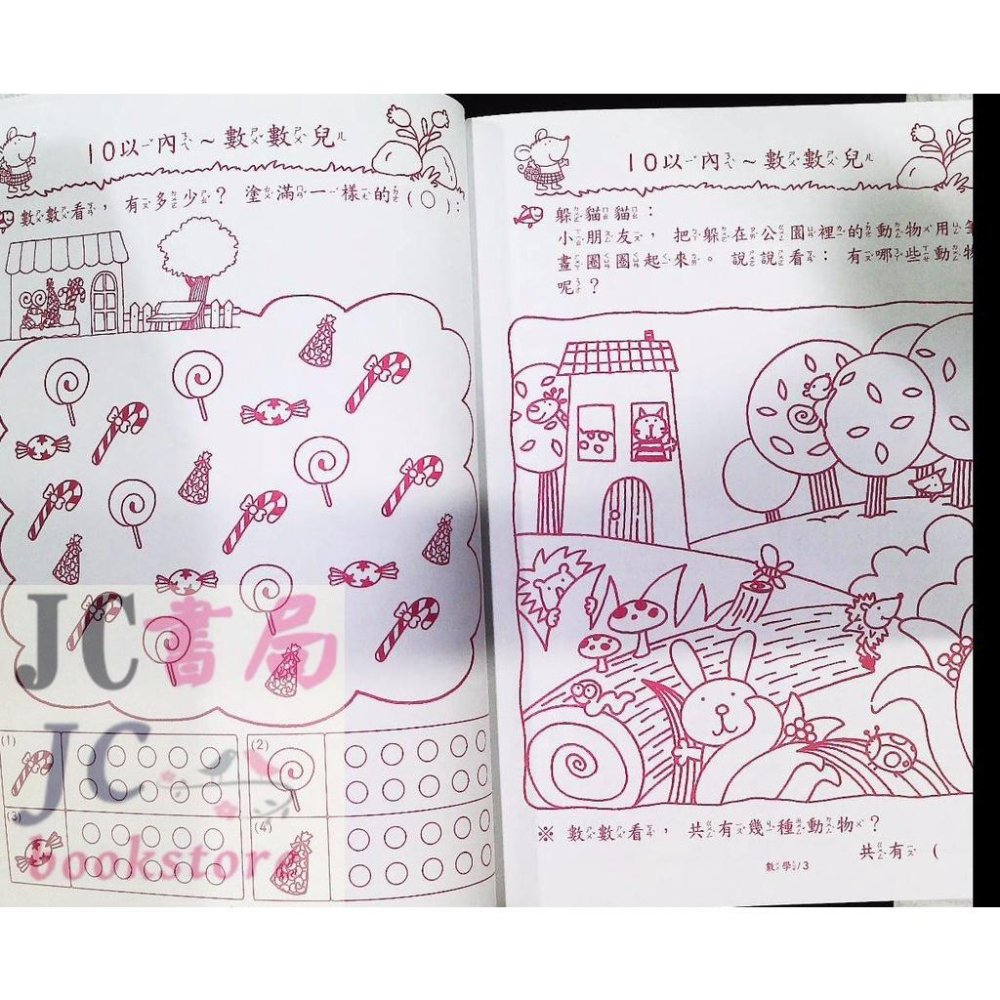 10以內~數數兒
數數看,有多少?塗滿一樣的(○):
(1)
(2)
(3)
(4)
JC書局
JC
bookstore
10以內~數數兒
躲貓貓:
小朋友,把躲在公園裡的動物用筆
畫圈圈起來。說說看:有哪些動物
呢?
※ 數數看,共有幾種動物?
共有(
數學/3